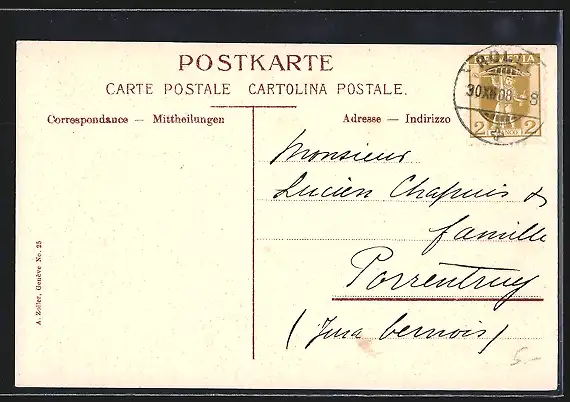 POSTKARTE
CARTE POSTALE CARTOLINA POSTALE.
Correspondance — Mittheilungen
Adresse — Indirizzo
30 XII 08 - 8
2 FRANCO 2
Monsieur
Lucien Chapuis &
famille
Porrentruy
(Jura bernois)
A. Zoller, Genève No. 25
5.-